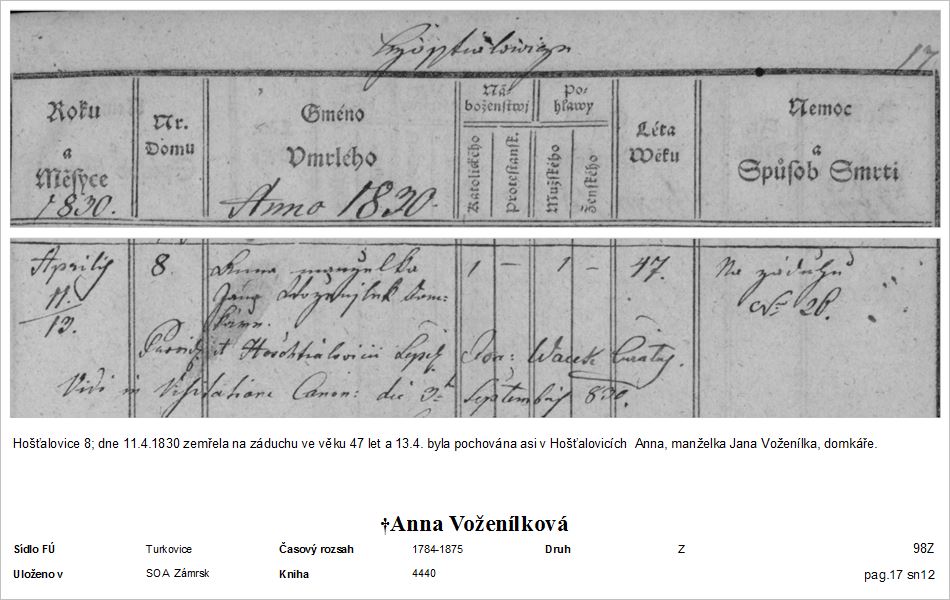 17
Roku
a
Měsyce
1830.
Nr.
Domu
Gméno
Vmrlého
Anno 1830.
Ná-
boženstwj
Katolického
Protestansk.
Po-
hlawy
Mužského
Ženského
Léta
Wěku
Nemoc
a
Spůsob Smrti
Aprilis 8. Anna manželka 1 — 1 — 47. Na záduhu
11. Jana Woženjlek Dom- Nro 26.
13. káře.
Hoschtialovicii Ioa: Wacek
Vidi in Visitatione Canon: die 3 Septembris 830.
Hošťalovice 8; dne 11.4.1830 zemřela na záduchu ve věku 47 let a 13.4. byla pochována asi v Hošťalovicích Anna, manželka Jana Voženílka, domkáře.
†Anna Voženílková
Sídlo FÚ Turkovice Časový rozsah 1784-1875 Druh Z 98Z
Uloženo v SOA Zámrsk Kniha 4440 pag.17 sn12